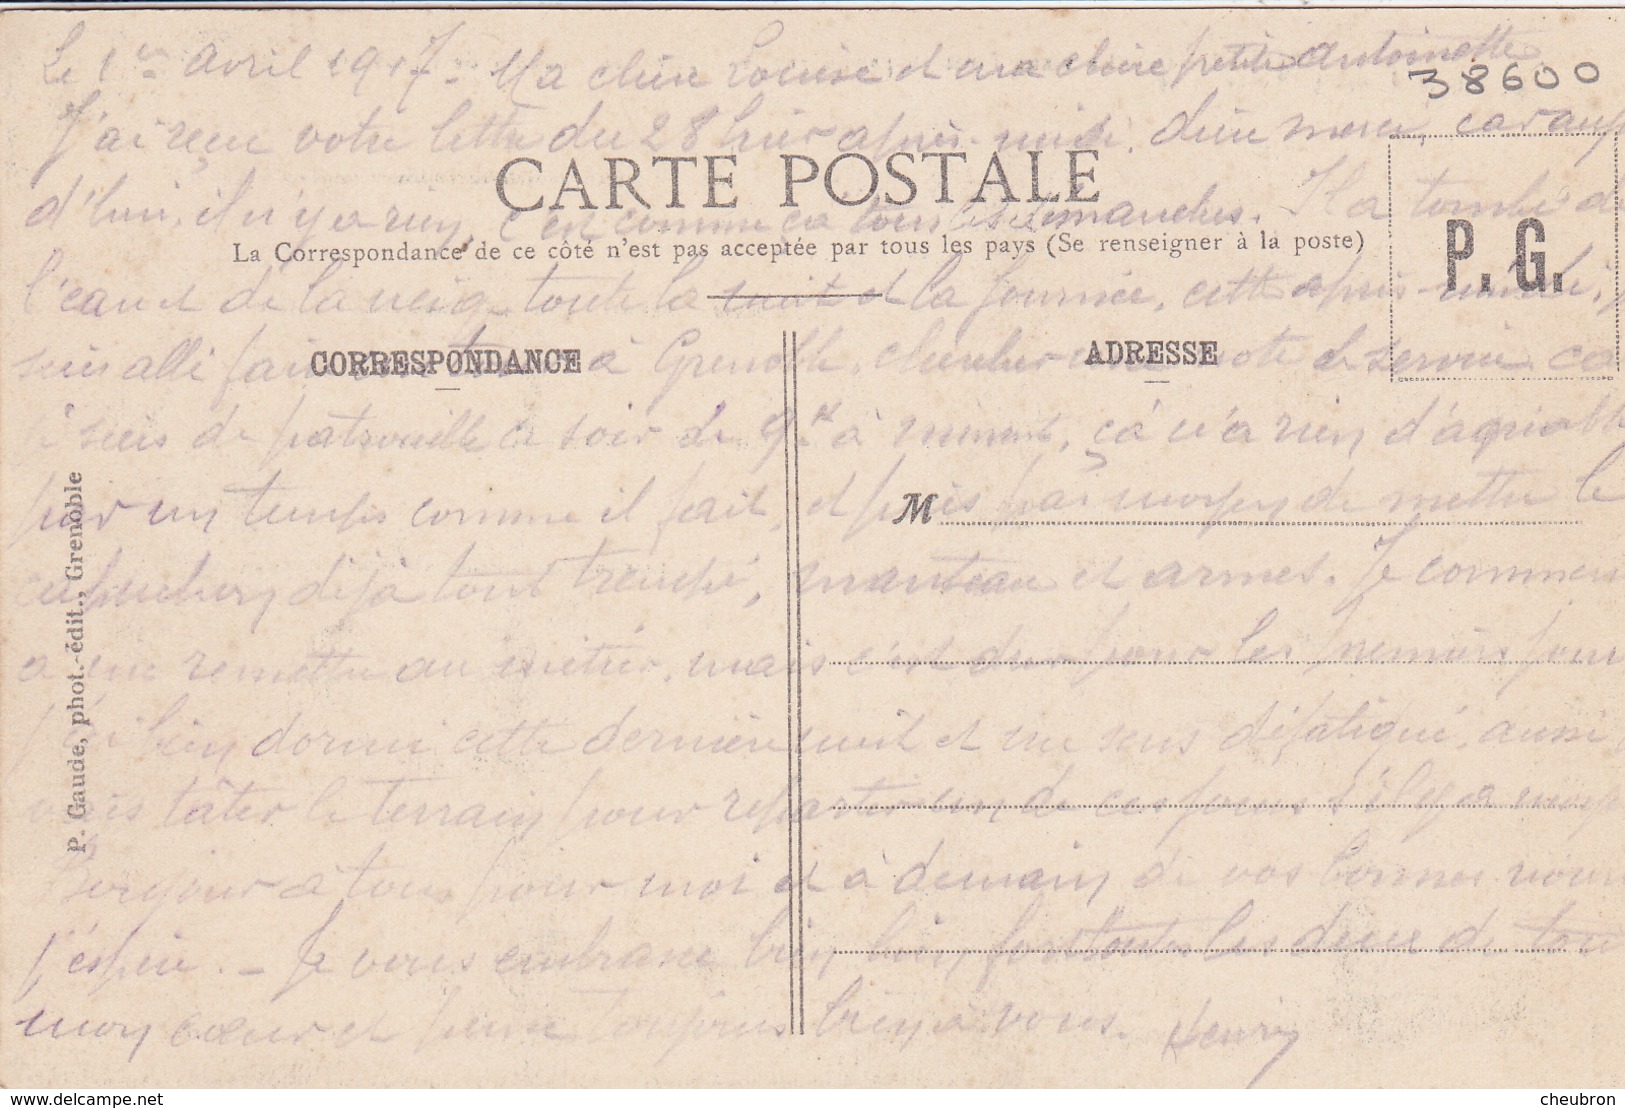 Le 1er avril 1917. Ma chère Louise et ma chère petite Antoinette
38600
J'ai reçu votre lettre du 28 hier après-midi, car auj
CARTE POSTALE
d'hui, il n'y a rien, c'est comme ça tous les dimanches. Il a tombé de
La Correspondance de ce côté n'est pas acceptée par tous les pays (Se renseigner à la poste)
P. G.
l'eau et de la neige toute la nuit et la journée, cette après-midi, j
suis allé à Grenoble, chercher une note de service, ce
CORRESPONDANCE
ADRESSE
je suis de patrouille ce soir de 9h à minuit, çà n'a rien d'agréable
par un temps comme il fait et puis pas moyen de mettre le
M
capuchon déjà tout trempé, manteau et armes. Je commence
a me remettre au métier, mais c'est dur pour les premiers jours
j'ai bien dormi cette dernière nuit et me sens défatigué, aussi
vais tâter le terrain pour repartir un de ces jours s'il y a moy
Bonjour à tous pour moi et à demain de vos bonnes nouv
j'espère. - Je vous embrasse bien bien fort toutes les deux de tou
mon cœur et pense toujours bien à vous. Henry
P. Gaude, phot.-édit., Grenoble
delcampe.net
cheubron